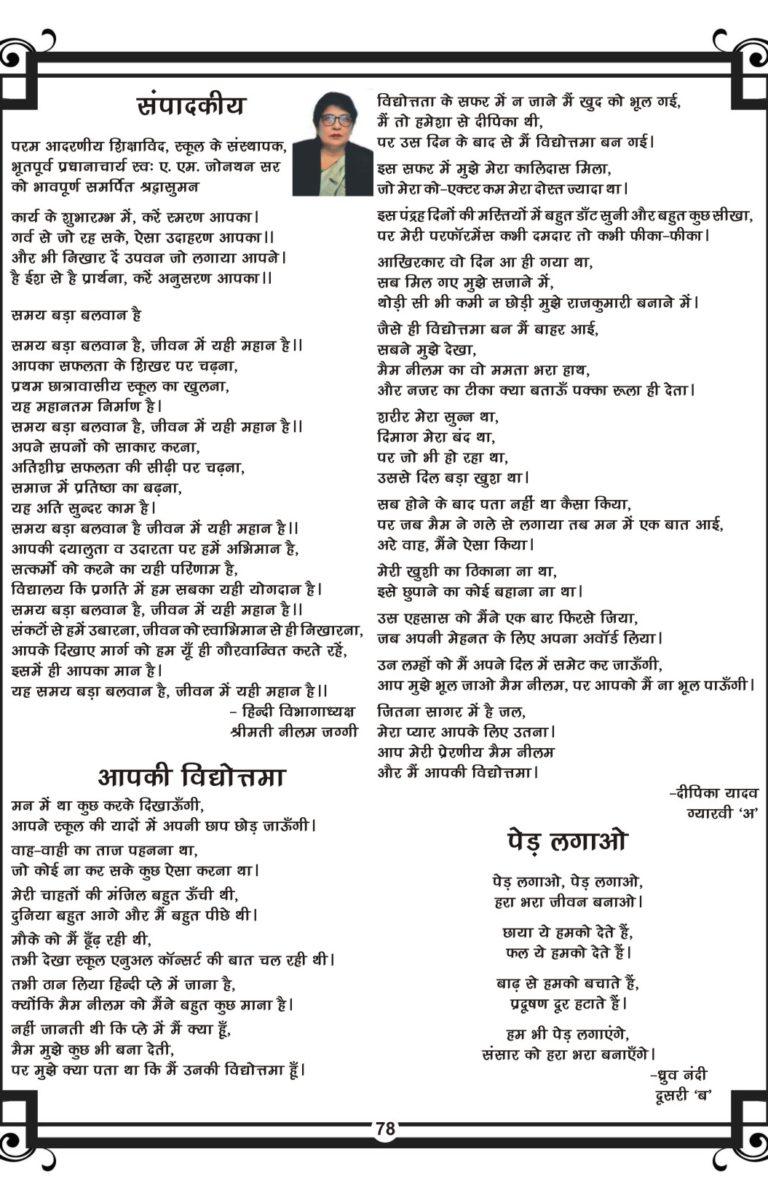 संपादकीय
परम आदरणीय शिक्षाविद, स्कूल के संस्थापक,
भूतपूर्व प्रधानाचार्य स्वः ए. एम. जोनथन सर
को भावपूर्ण समर्पित श्रद्रासुमन
कार्य के शुभारम्भ में, करें स्मरण आपका।
गर्व से जो रह सके, ऐसा उदाहरण आपका।।
और भी निखार दें उपवन जो लगाया आपने।
है ईश से है प्रार्थना, करें अनुसरण आपका।।
समय बड़ा बलवान है
समय बड़ा बलवान है, जीवन में यही महान है।।
आपका सफलता के शिखर पर चढ़ना,
प्रथम छात्रावासीय स्कूल का खुलना,
यह महानतम निर्माण है।
समय बड़ा बलवान है, जीवन में यही महान है।।
अपने सपनों को साकार करना,
अतिशीघ्र सफलता की सीढ़ी पर चढ़ना,
समाज में प्रतिष्ठा का बढ़ना,
यह अति सुन्दर काम है।
समय बड़ा बलवान है जीवन में यही महान है।।
आपकी दयालुता व उदारता पर हमें अभिमान है,
सत्कर्मो को करने का यही परिणाम है,
विद्यालय कि प्रगति में हम सबका यही योगदान है।
समय बड़ा बलवान है, जीवन में यही महान है।।
संकटों से हमें उबारना, जीवन को स्वाभिमान से ही निखारना,
आपके दिखाए मार्ग को हम यूँ ही गौरवान्वित करते रहें,
इसमें ही आपका मान है।
यह समय बड़ा बलवान है, जीवन में यही महान है।।
– हिन्दी विभागाध्यक्ष
श्रीमती नीलम जग्गी
आपकी विद्योत्तमा
मन में था कुछ करके दिखाऊँगी,
आपने स्कूल की यादों में अपनी छाप छोड़ जाऊँगी।
वाह-वाही का ताज पहनना था,
जो कोई ना कर सके कुछ ऐसा करना था।
मेरी चाहतों की मंजिल बहुत ऊँची थी,
दुनिया बहुत आगे और मैं बहुत पीछे थी।
मौके को मैं ढूँढ़ रही थी,
तभी देखा स्कूल एनुअल कॉन्सर्ट की बात चल रही थी।
तभी ठान लिया हिन्दी प्ले में जाना है,
क्योंकि मैम नीलम को मैंने बहुत कुछ माना है।
नहीं जानती थी कि प्ले में मैं क्या हूँ,
मैम मुझे कुछ भी बना देती,
पर मुझे क्या पता था कि मैं उनकी विद्योत्तमा हूँ।
विद्योत्तता के सफर में न जाने मैं खुद को भूल गई,
मैं तो हमेशा से दीपिका थी,
पर उस दिन के बाद से मैं विद्योत्तमा बन गई।
इस सफर में मुझे मेरा कालिदास मिला,
जो मेरा को-एक्टर कम मेरा दोस्त ज्यादा था।
इस पंद्रह दिनों की मस्तियों में बहुत डाँट सुनी और बहुत कुछ सीखा,
पर मेरी परफॉरमेंस कभी दमदार तो कभी फीका-फीका।
आखिरकार वो दिन आ ही गया था,
सब मिल गए मुझे सजाने में,
थोड़ी सी भी कमी न छोड़ी मुझे राजकुमारी बनाने में।
जैसे ही विद्योत्तमा बन मैं बाहर आई,
सबने मुझे देखा,
मैम नीलम का वो ममता भरा हाथ,
और नजर का टीका क्या बताऊँ पक्का रूला ही देता।
शरीर मेरा सुन्न था,
दिमाग मेरा बंद था,
पर जो भी हो रहा था,
उससे दिल बड़ा खुश था।
सब होने के बाद पता नहीं था कैसा किया,
पर जब मैम ने गले से लगाया तब मन में एक बात आई,
अरे वाह, मैंने ऐसा किया।
मेरी खुशी का ठिकाना ना था,
इसे छुपाने का कोई बहाना ना था।
उस एहसास को मैंने एक बार फिरसे जिया,
जब अपनी मेहनत के लिए अपना अवॉर्ड लिया।
उन लम्हों को मैं अपने दिल में समेट कर जाऊँगी,
आप मुझे भूल जाओ मैम नीलम, पर आपको मैं ना भूल पाऊँगी।
जितना सागर में है जल,
मेरा प्यार आपके लिए उतना।
आप मेरी प्रेरणीय मैम नीलम
और मैं आपकी विद्योत्तमा।
–दीपिका यादव
ग्यारवी ‘अ’
पेड़ लगाओ
पेड़ लगाओ, पेड़ लगाओ,
हरा भरा जीवन बनाओ।
छाया ये हमको देते हैं,
फल ये हमको देते हैं।
बाढ़ से हमको बचाते हैं,
प्रदूषण दूर हटाते हैं।
हम भी पेड़ लगाएंगे,
संसार को हरा भरा बनाएँगे।
–ध्रुव नंदी
दूसरी ‘ब’
78